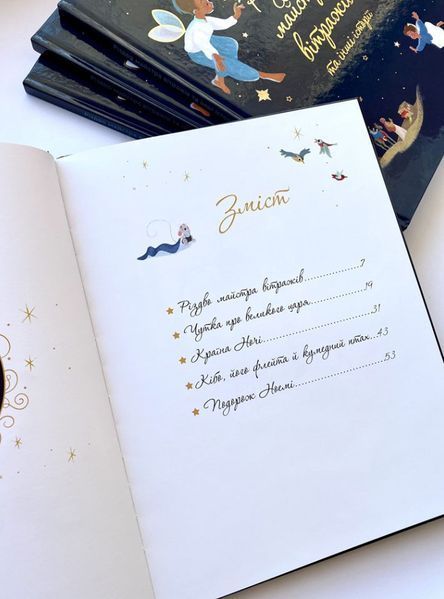 майстра
вітражів
та інші історії
Зміст
Різдво майстра вітражів..............7
Чутка про великого царя..............19
Країна Ночі..............................31
Кібо, його флейта й кумедний птах...43
Подорож Ноемі..........................53